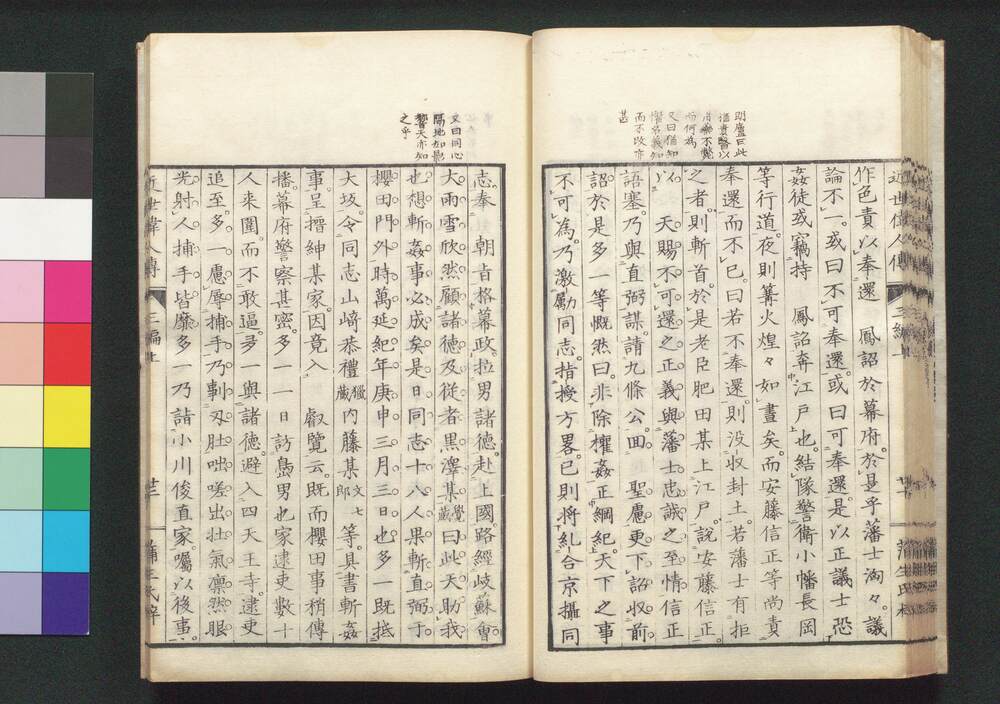 明廬曰此
又曰猶知
而不改亦
甚
近世偉人傳
作色責以奉還 鳳詔於幕府。於是乎藩士洶々。議
論不一。或曰不可奉還。或曰可奉還。是以正議士恐
姦徒或竊持 鳳詔奔江戸也。結隊警衛小幡長岡
等行道。夜則篝火煌々如晝矣。而安藤信正等尚責
奉還而不已。曰若不奉還。則没收封土。若藩士有拒
之者。則斬首。於是老臣肥田某上江戸。說安藤信正。
以 天賜不可還之正義與藩士忠誠之至情信正
語塞。乃與直弼謀。請九條公。回 聖慮更下詔收前
詔。於是多一等慨然曰。非除權姦正綱紀。天下之事
不可爲。乃激勵同志。指授方畧。已則將糺合京攝同
志。奉 朝旨格幕政。拉男諸德。赴上國。路經岐蘇。會
大雨雪。欣然顧諸德及從者黒澤某覺藏曰。此天助我
也。想斬姦事必成矣。是日同志十八人果斬直弼于
櫻田門外。時萬延紀年庚申三月三日也。多一既抵
大坂。令同志山﨑恭禮獵藏内藤某文七郎等。具書斬姦
事。呈搢紳某家。因竟入 叡覽云。既而櫻田事稍傳
播。幕府警察甚密。多一一日訪島男也家。逮吏數十
人來圍。而不敢逼。多一與諸德。避入四天王寺。逮吏
追至。多一慮辱捕手。乃事刄肚。咄嗟出壯氣凛然。眼
光射人。捕手皆靡。多一乃詣小川俊直家。囑以後事。
又曰同心
隔地如影
響天亦知
之乎
近世偉人傳
三編上
蒲生氏梓